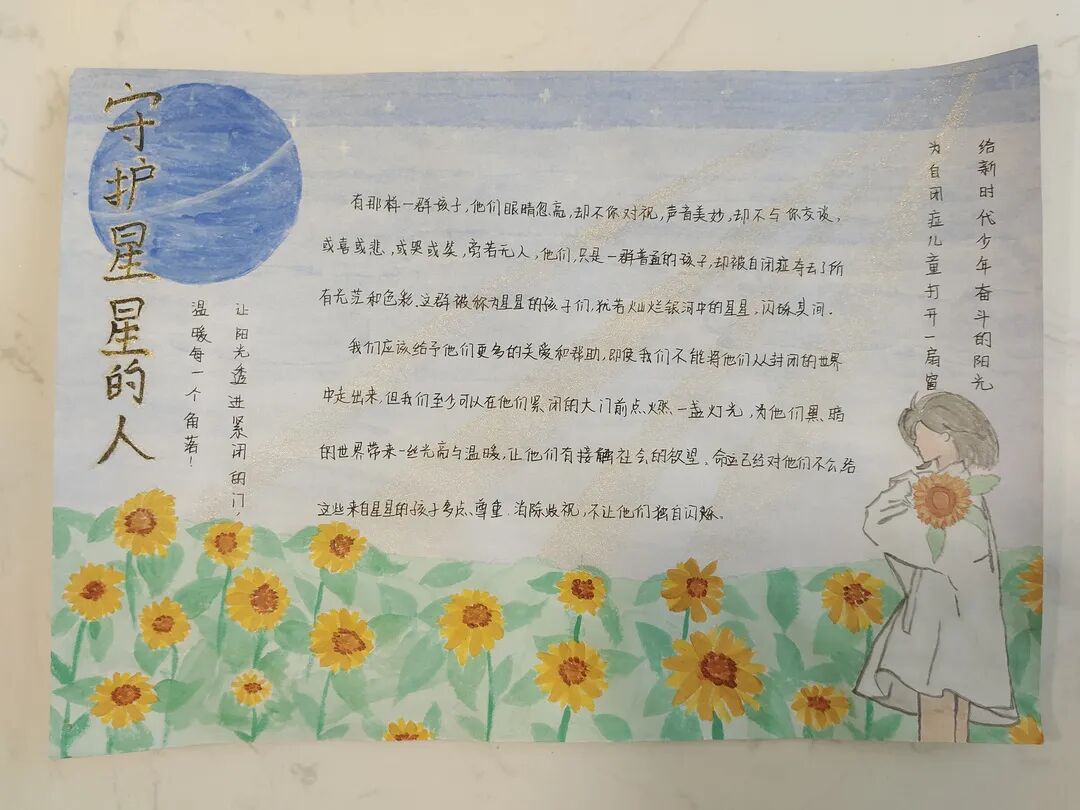 守护星星的人
让阳光透进紧闭的门，
温暖每一个角落！
有那样一群孩子，他们眼睛忽亮，却不你对视，声音美妙，却不与你交谈，
或喜或悲，或哭或笑，旁若无人，他们，只是一群普通的孩子，却被自闭症夺去了所
有光芒和色彩。这群被称为星星的孩子们，犹若灿烂银河中的星星，闪烁其间.
我们应该给予他们更多的关爱和帮助，即使我们不能将他们从封闭的世界
中走出来，但我们至少可以在他们紧闭的大门前点燃一盏灯光，为他们黑暗
的世界带来一丝光亮与温暖，让他们有接触社会的欲望。命运已经对他们不公，给
这些来自星星的孩子多点尊重.消除歧视，不让他们独自闪烁。
给新时代少年奋斗的阳光
为自闭症儿童打开一扇窗